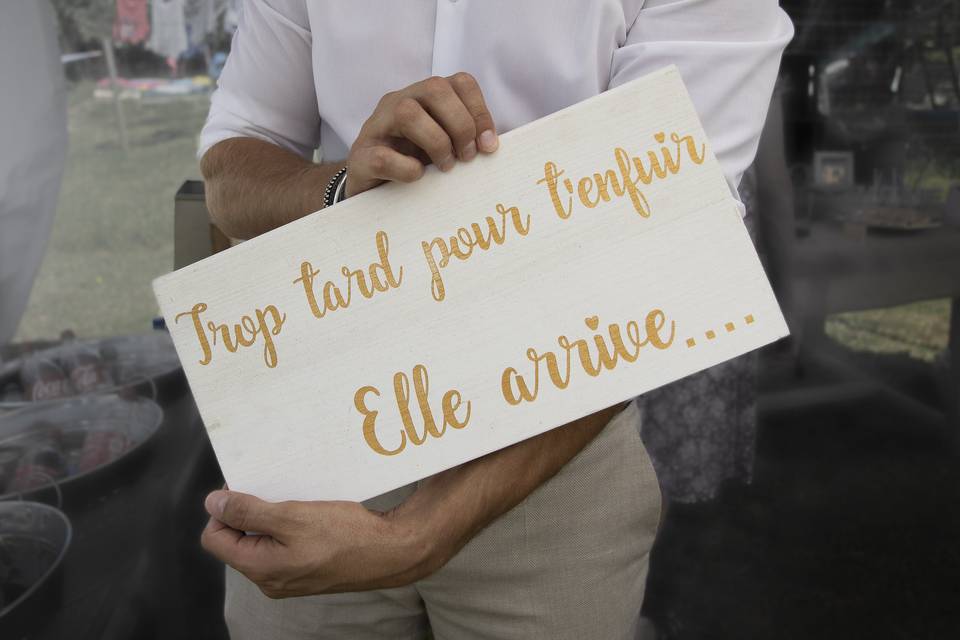 Trop tard pour t'enfuir
Elle arrive....